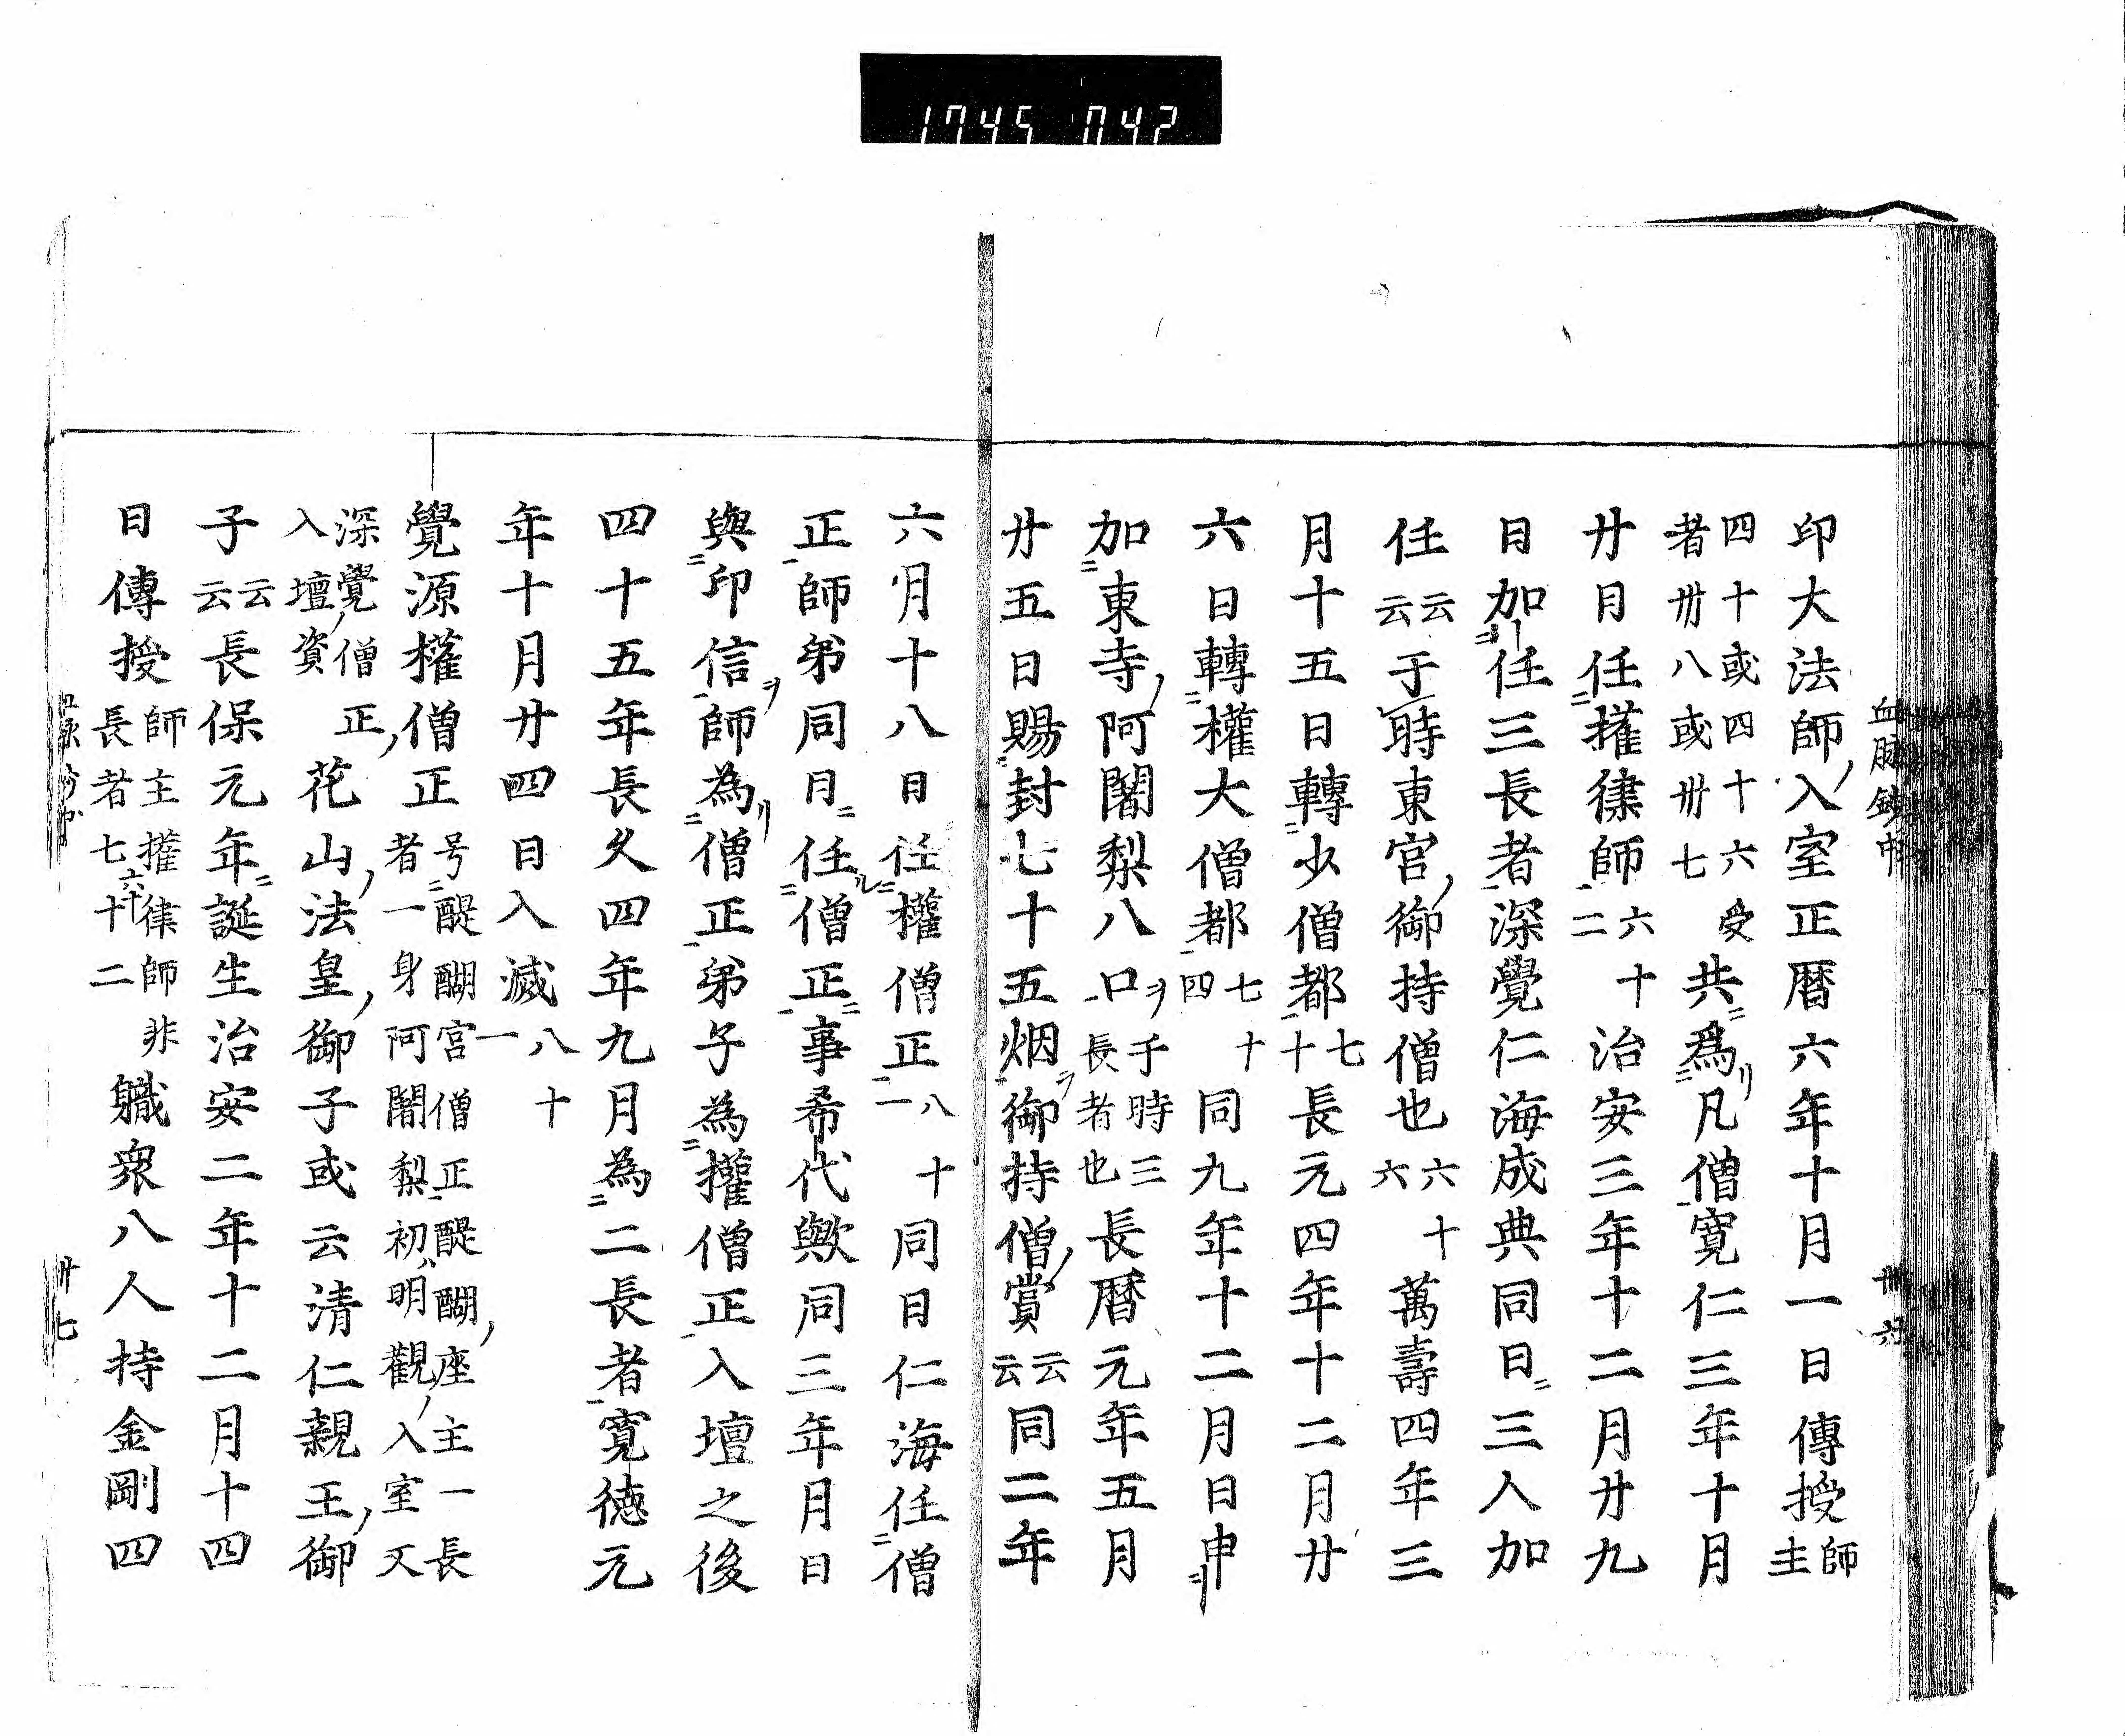 1745 042
印大法師入室正暦六年十月一日傳授師主
四十或四十六受者卅八或卅七共爲凡僧寛仁三年十月
廿日任權律師六十二治安三年十二月廿九
日加任三長者深覺仁海成典同日三人加
任云云于時東宮御持僧也六十六萬壽四年三
月十五日轉少僧都七十長元四年十二月廿
六日轉權大僧都七十四同九年十二月日申
加東寺阿闍梨八口于時三長者也長暦元年五月
廿五日賜封七十五烟御持僧賞云云同二年
六月十八日任權僧正八十一同日仁海任僧
正師弟同日任僧正事希代歟同三年月日
與印信師為僧正弟子為權僧正入壇之後
四十五年長久四年九月為二長者寛德元
年十月廿四日入滅八十一
覺源權僧正号醍醐宮僧正醍醐座主一長者一身阿闍梨初明觀入室又
深覺僧正入壇資花山法皇御子或云清仁親王御
子云云長保元年誕生治安二年十二月十四
日傳授師主權律師長者七六十十二非職衆八人持金剛四
血脉鈔中
卅六
卅七